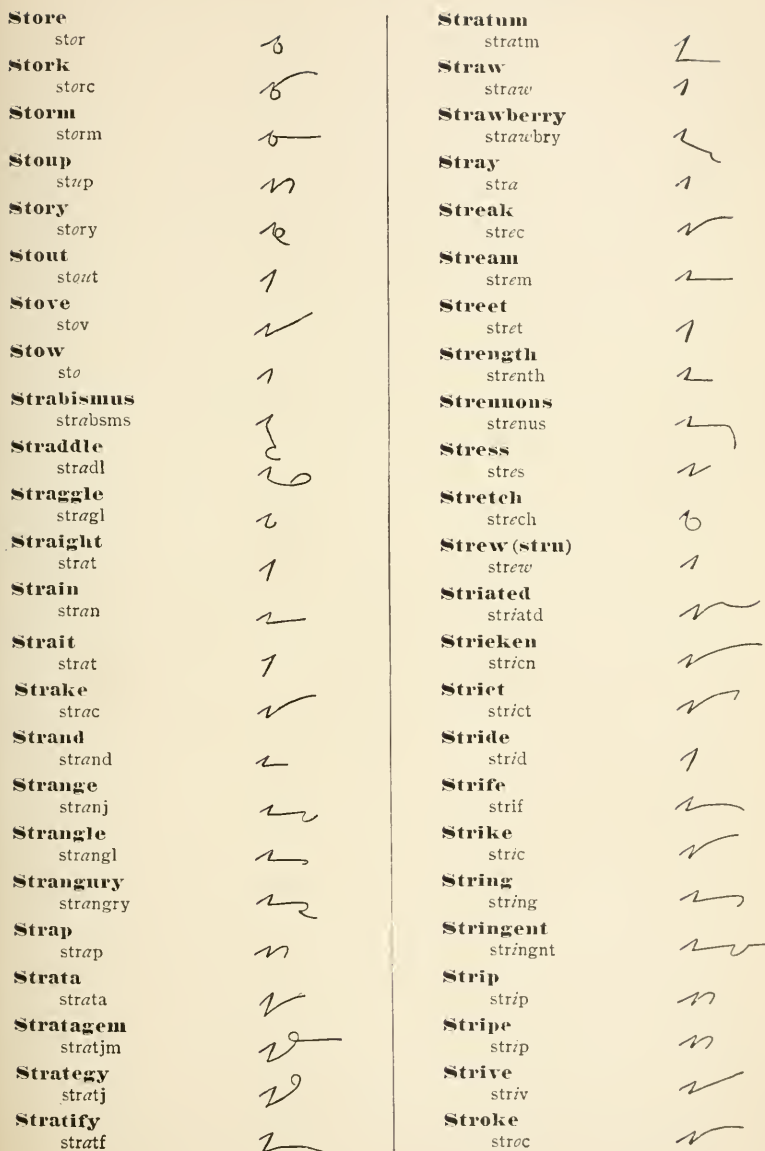 Store
stor
Stork
storc
Storm
storm
Stoup
stup
Story
story
Stout
stout
Stove
stov
Stow
sto
Strabismus
strabsms
Straddle
stradl
Straggle
stragl
Straight
strat
Strain
stran
Strait
strat
Strake
strac
Strand
strand
Strange
stranj
Strangle
strangl
Strangury
strangry
Strap
strap
Strata
strata
Stratagem
stratjm
Strategy
stratj
Stratify
stratf
Stratum
stratm
Straw
straw
Strawberry
strawbry
Stray
stra
Streak
strec
Stream
strem
Street
stret
Strength
strenth
Strenuous
strenus
Stress
stres
Stretch
strech
Strew (stru)
strew
Striated
striatd
Stricken
stricn
Strict
strict
Stride
strid
Strife
strif
Strike
stric
String
string
Stringent
stringnt
Strip
strip
Stripe
strip
Strive
striv
Stroke
stroc